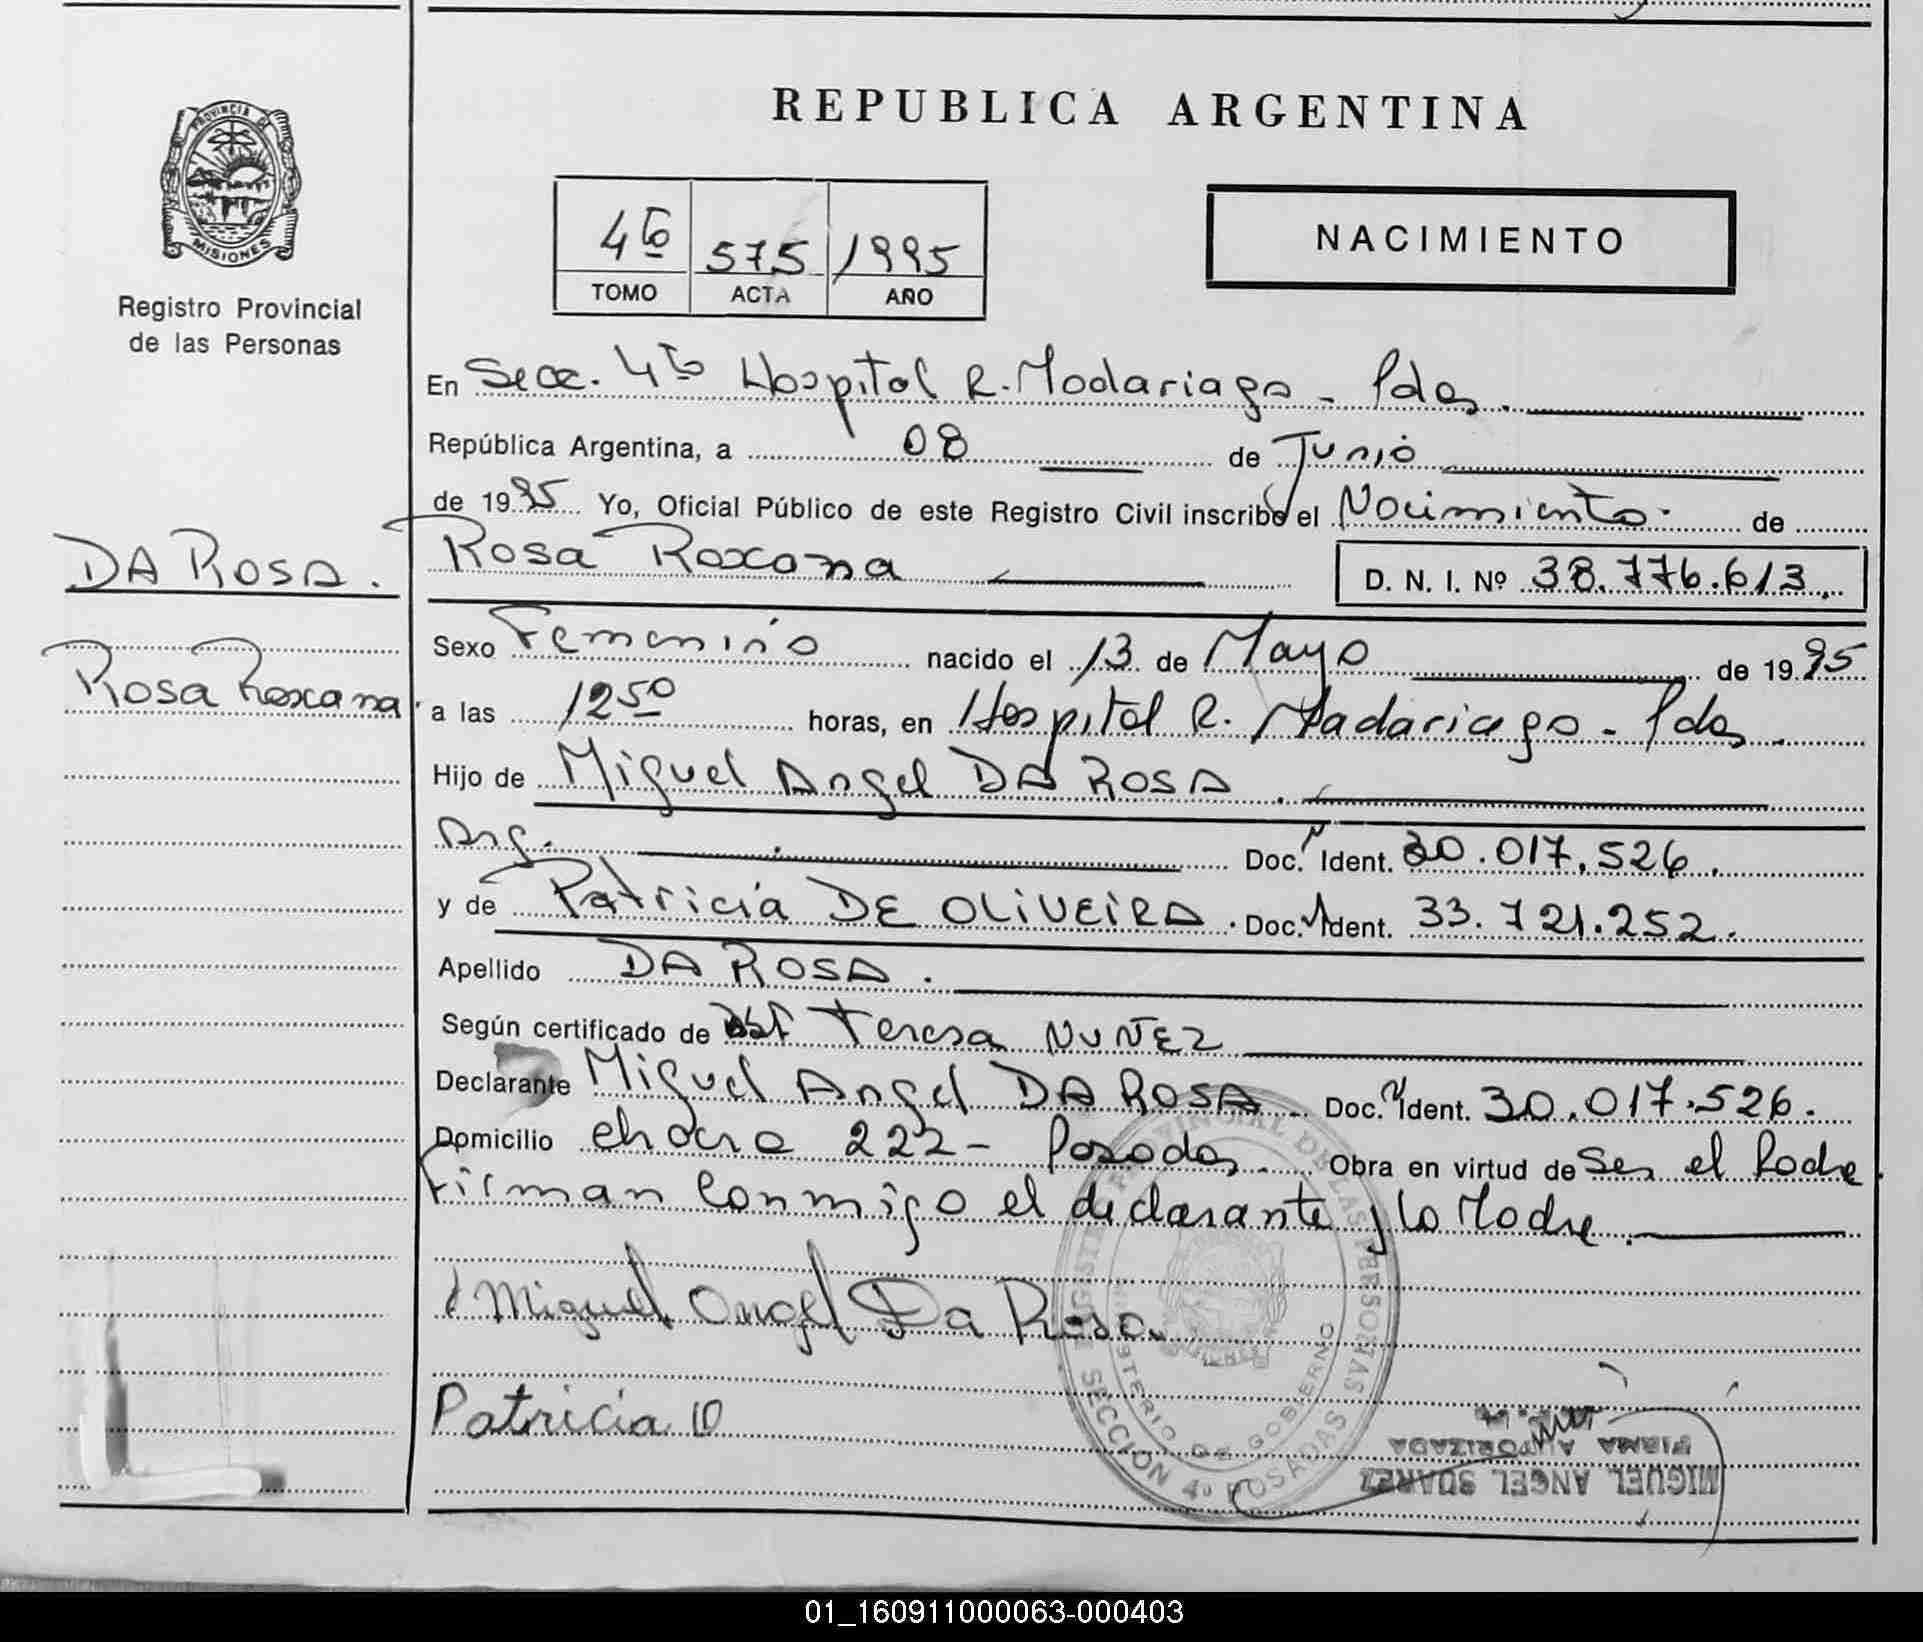 REPUBLICA ARGENTINA
PROVINCIA DE
MISIONES
Registro Provincial
de las Personas
4to 575 1995
TOMO ACTA AÑO
NACIMIENTO
En Secc. 4ta Hospital R. Madariaga - Pdas.
República Argentina, a 08 de Junio
de 1995 Yo, Oficial Público de este Registro Civil inscribo el Nacimiento de
DA ROSA.
Rosa Roxana
Rosa Roxana D. N. I. Nº 38.776.613.
Sexo Femenino nacido el 13 de Mayo de 1995
a las 12 50 horas, en Hospital R. Madariaga - Pdas.
Hijo de Miguel Angel DA ROSA.
Arg. Doc. Ident. 30.017.526.
y de Patricia DE OLIVEIRA. Doc. Ident. 33.721.252.
Apellido DA ROSA.
Según certificado de Teresa NUÑEZ
Declarante Miguel Angel DA ROSA Doc. Ident. 30.017.526.
Domicilio chacra 222 - Posadas. Obra en virtud de Ser el Padre.
Firman Conmigo el declarante y la Madre.
Miguel Angel Da Rosa
Patricia
REGISTRO PROVINCIAL DE LAS PERSONAS
MINISTERIO DE GOBIERNO
SECCION 4a POSADAS
MIGUEL ANGEL SUAREZ
FIRMA AUTORIZADA
01_160911000063-000403